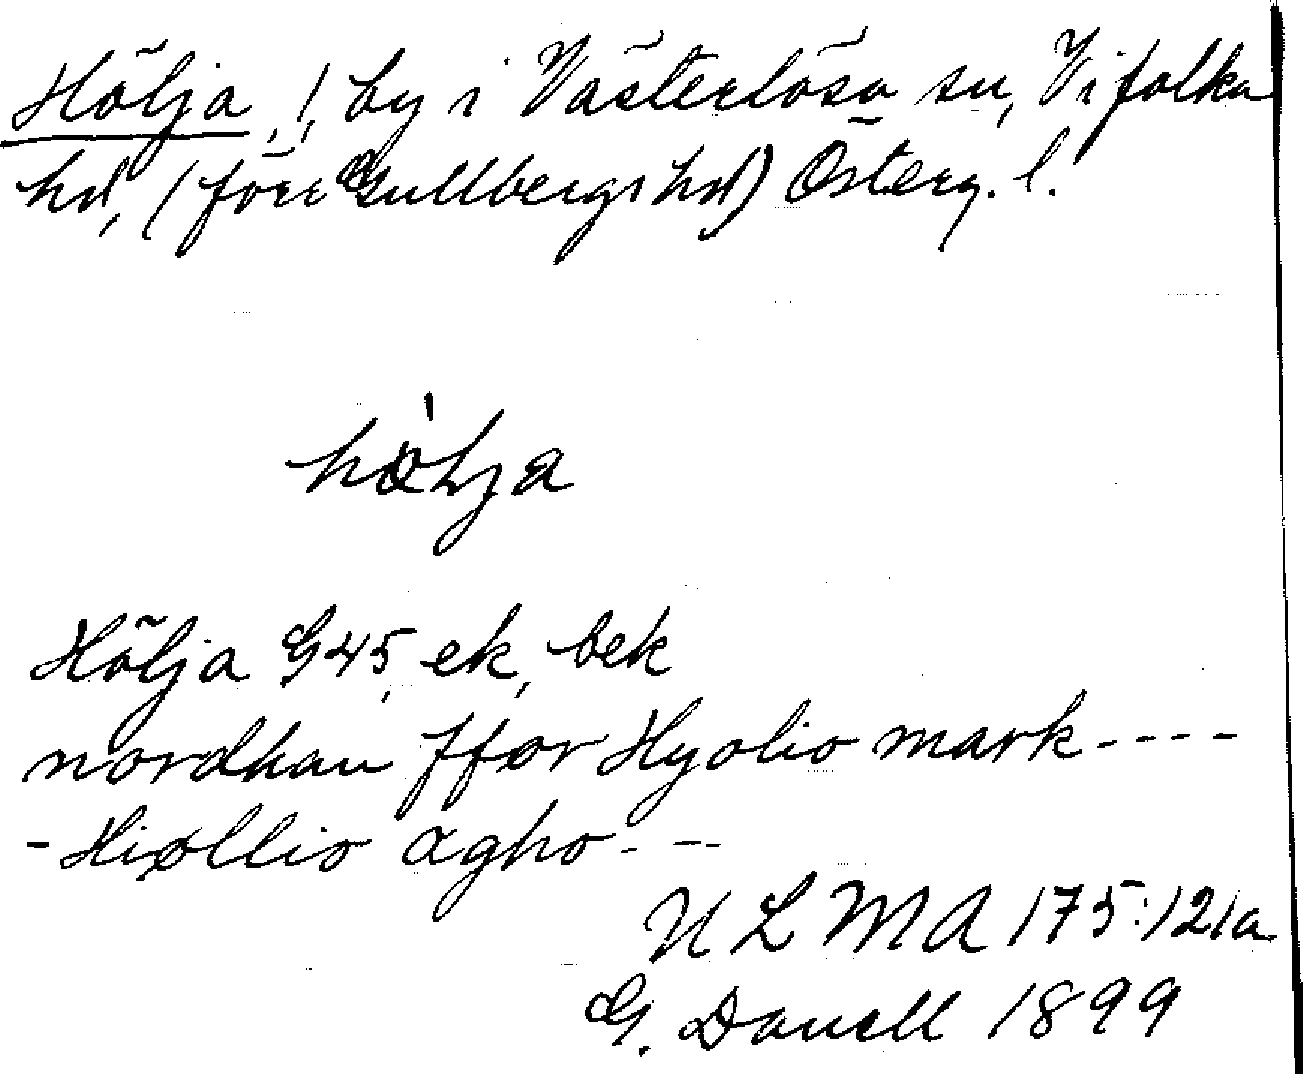 Hölja, !, by i Västerlösa sn, Vifolka
hd, (förr Gullbergs hd) Österg. l.
hölja
Hölja G45, ek, bek
nordhan ffor Hyolio mark----
-Hiøllio agho---
ULMA 175:121a
G. Danell 1899